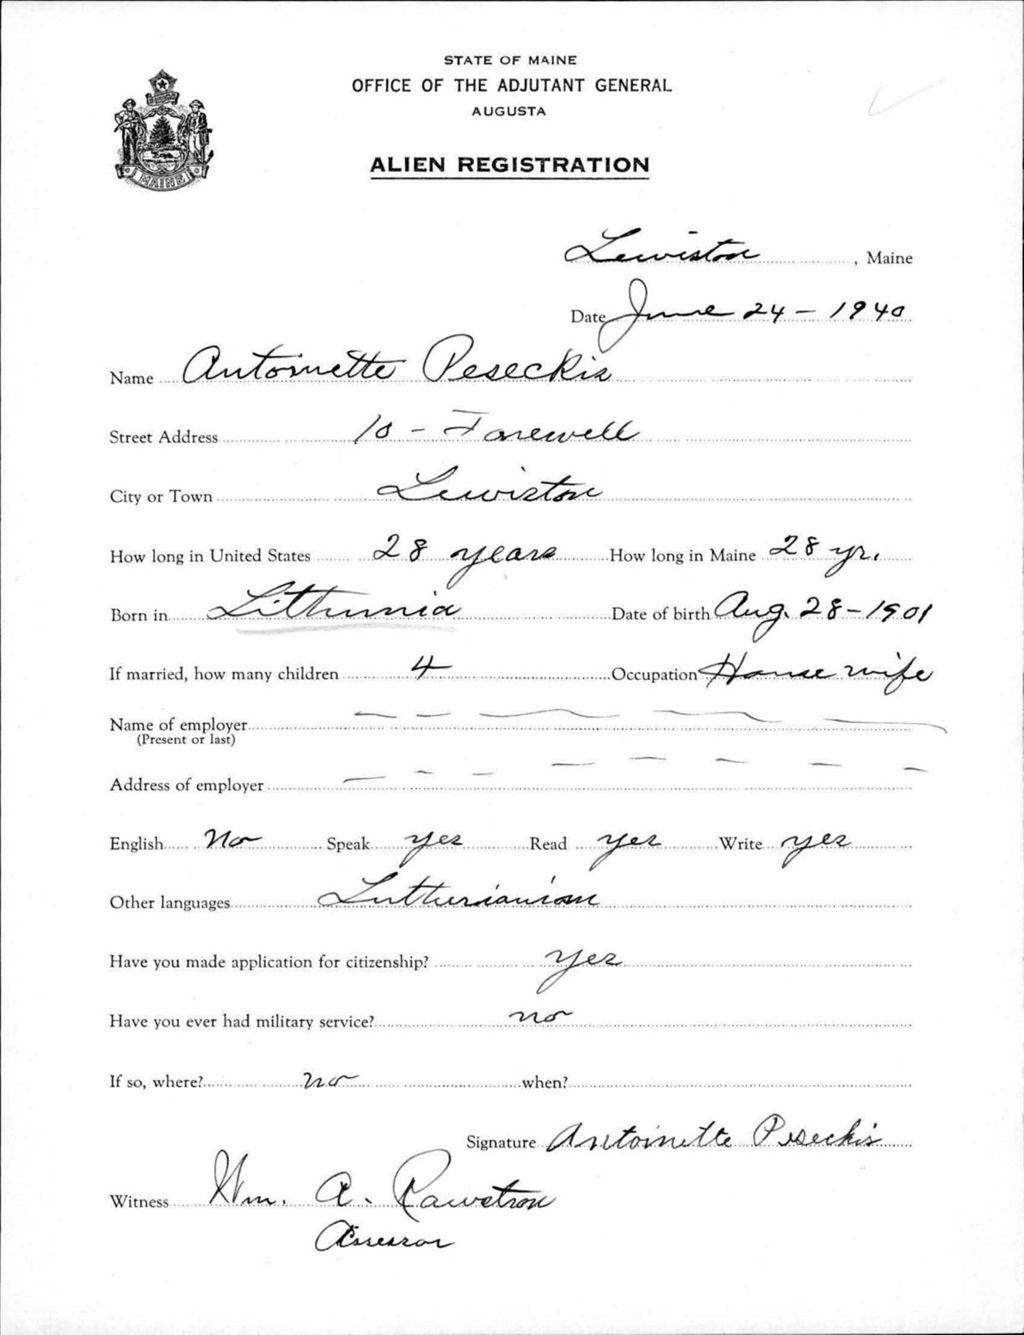 STATE OF MAINE
OFFICE OF THE ADJUTANT GENERAL
AUGUSTA
ALIEN REGISTRATION
MAINE
Lewiston, Maine
Date June 24-1940
Name Antoinette Peseckis
Street Address 10 - Farewell
City or Town Lewiston
How long in United States 28 years How long in Maine 28 yr.
Born in Lithunnia Date of birth Aug. 28-1901
If married, how many children 4 Occupation House wife
Name of employer
(Present or last)
Address of employer
English No Speak yes Read yes Write yes
Other languages
Have you made application for citizenship? yes
Have you ever had military service? no
If so, where? no when?
Signature Antoinette Peseckis
Witness Wm. A. Rawstron
Assessor